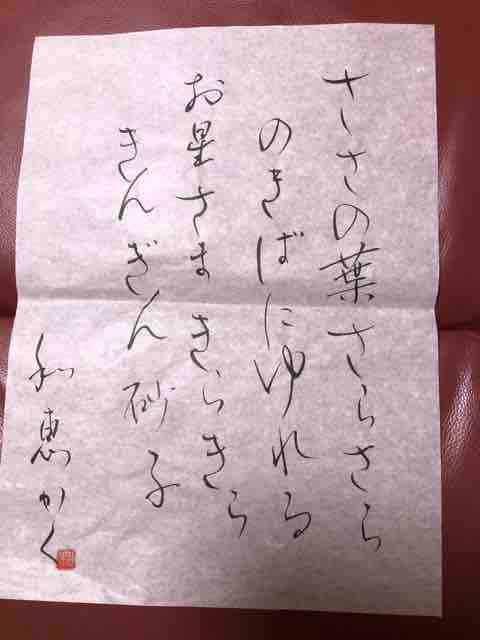 ささの葉さらさら
のきばにゆれる
お星さまきらきら
きんぎん砂子
和恵かく